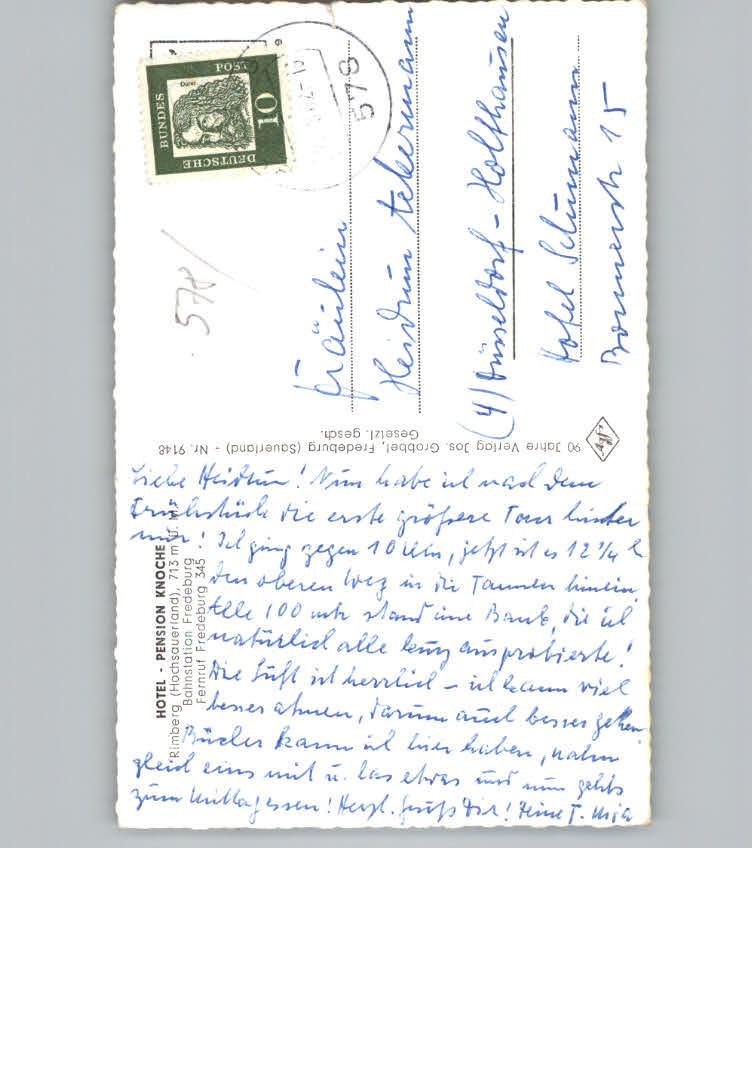 DEUTSCHE
BUNDES
POST
10
Dürer
578
578
Fräulein
Heidrun Ackermann
(4) Düsseldorf - Holthausen
Hotel Schumann
Bonnerstr 15
90 Jahre Verlag Jos. Grobbel, Fredeburg (Sauerland) - Nr. 9148
Gesetzl. gesch.
Agfa
HOTEL - PENSION KNOCHE
Rimberg (Hochsauerland), 713 m ü. M.
Bahnstation Fredeburg
Fernruf Fredeburg 345
Liebe Heidrun! Nun habe ich nach dem
Frühstück die erste größere Tour hinter
mir! Ich ging gegen 10 Uhr, jetzt ist es 12 ¼ h
den oberen Weg in die Tannen hinein.
Alle 100 mtr stand eine Bank, die ich
natürlich alle kurz ausprobierte!
Die Luft ist herrlich - ich kann viel
besser atmen, darum auch besser gehen.
Bücher kann ich hier haben, nahm
gleich eins mit u. las etwas und nun gehts
zum Mittagessen! Herzl. Gruß Dir! Deine T. Mia